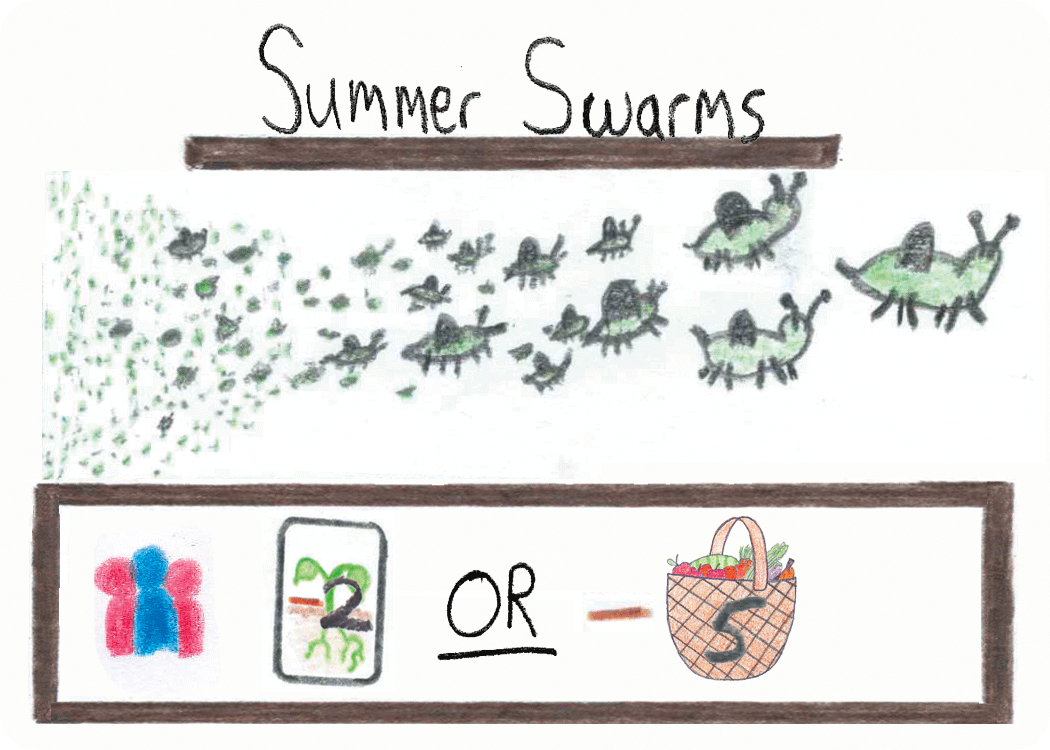 Summer Swarms
-2 OR -5